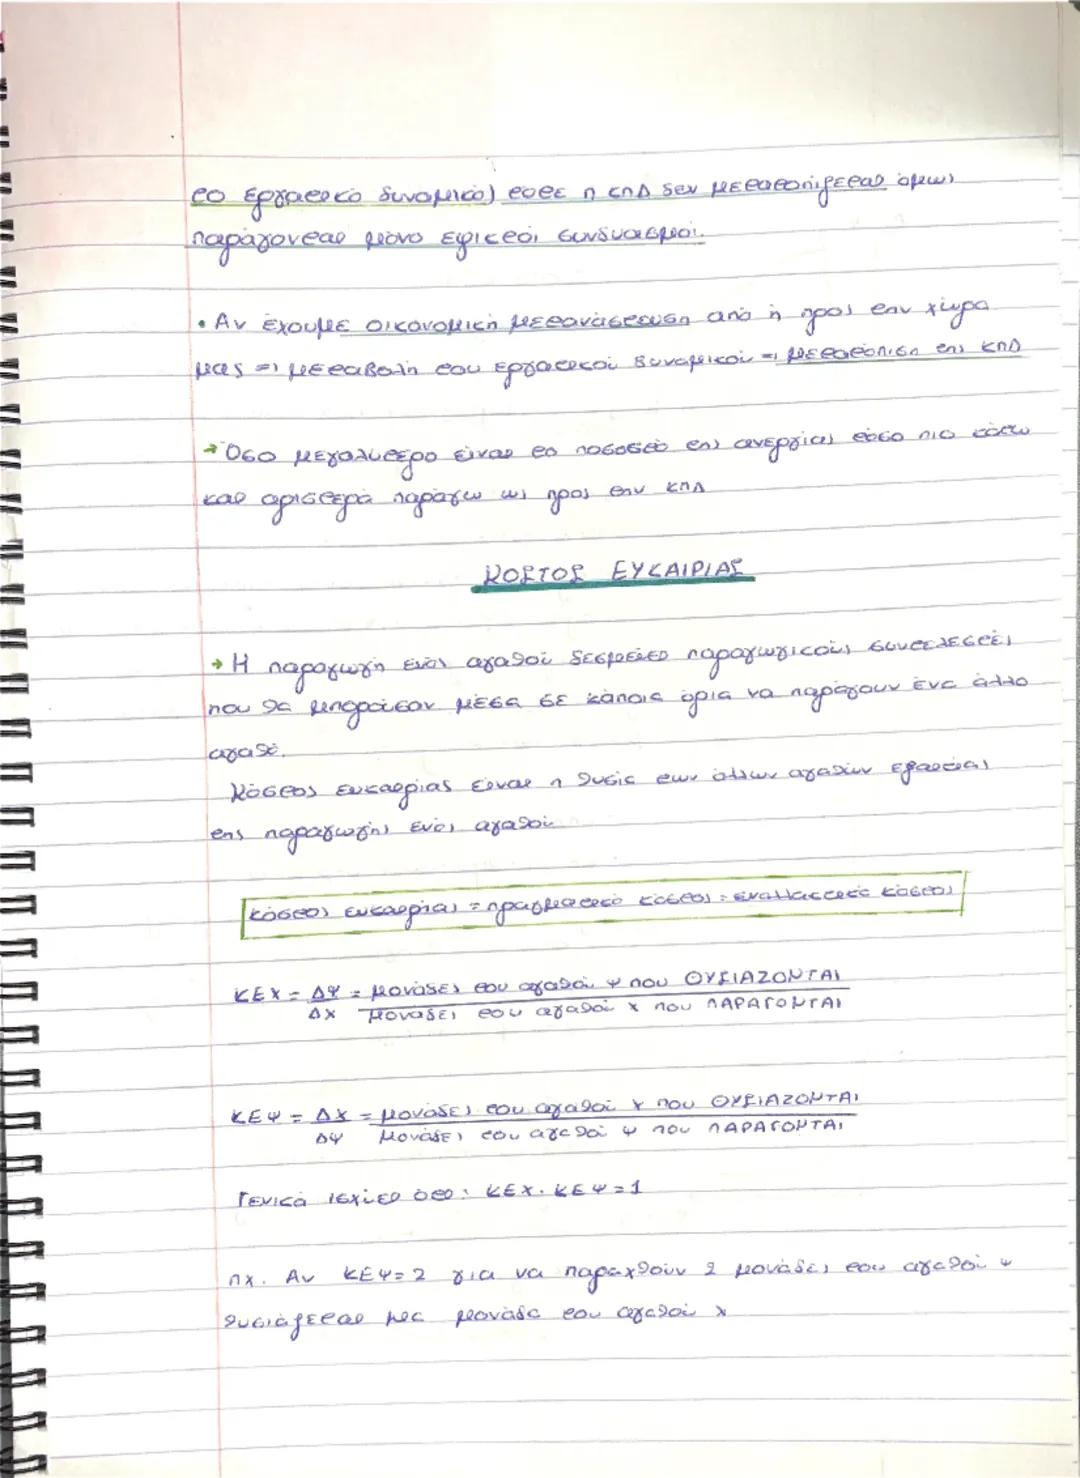 το εργατικό δυναμικό) τότε η ΚΠΔ δεν μετατοπίζεται όμως
παράγονται μόνο εφικτοί συνδυασμοί.
• Αν έχουμε οικονομική μετανάστευση από ή προς την χώρα
μας => μεταβολή του εργατικού δυναμικού => μετατόπιση της ΚΠΔ
→ Όσο μεγαλύτερο είναι το ποσοστό της ανεργίας τόσο πιο κάτω
και αριστερά παράγω ως προς την ΚΠΔ
ΚΟΣΤΟΣ ΕΥΚΑΙΡΙΑΣ
→ Η παραγωγή ενός αγαθού δεσμεύει παραγωγικούς συντελεστές
που θα μπορούσαν μέσα σε κάποια όρια να παράγουν ένα άλλο
αγαθό.
Κόστος ευκαιρίας είναι η θυσία των άλλων αγαθών εξαιτίας
της παραγωγής ενός αγαθού
κόστος ευκαιρίας = πραγματικό κόστος = εναλλακτικό κόστος
ΚΕΧ = ΔΨ = μονάδες του αγαθού ψ που ΘΥΣΙΑΖΟΝΤΑΙ
ΔΧ μονάδες του αγαθού χ που ΠΑΡΑΓΟΝΤΑΙ
ΚΕΨ = ΔΧ = μονάδες του αγαθού χ που ΘΥΣΙΑΖΟΝΤΑΙ
ΔΨ μονάδες του αγαθού ψ που ΠΑΡΑΓΟΝΤΑΙ
Γενικά ισχύει ότι: ΚΕΧ. ΚΕΨ = 1
πχ. Αν ΚΕΨ= 2 για να παραχθούν 2 μονάδες του αγαθού ψ
θυσιάζεται μια μονάδα του αγαθού χ